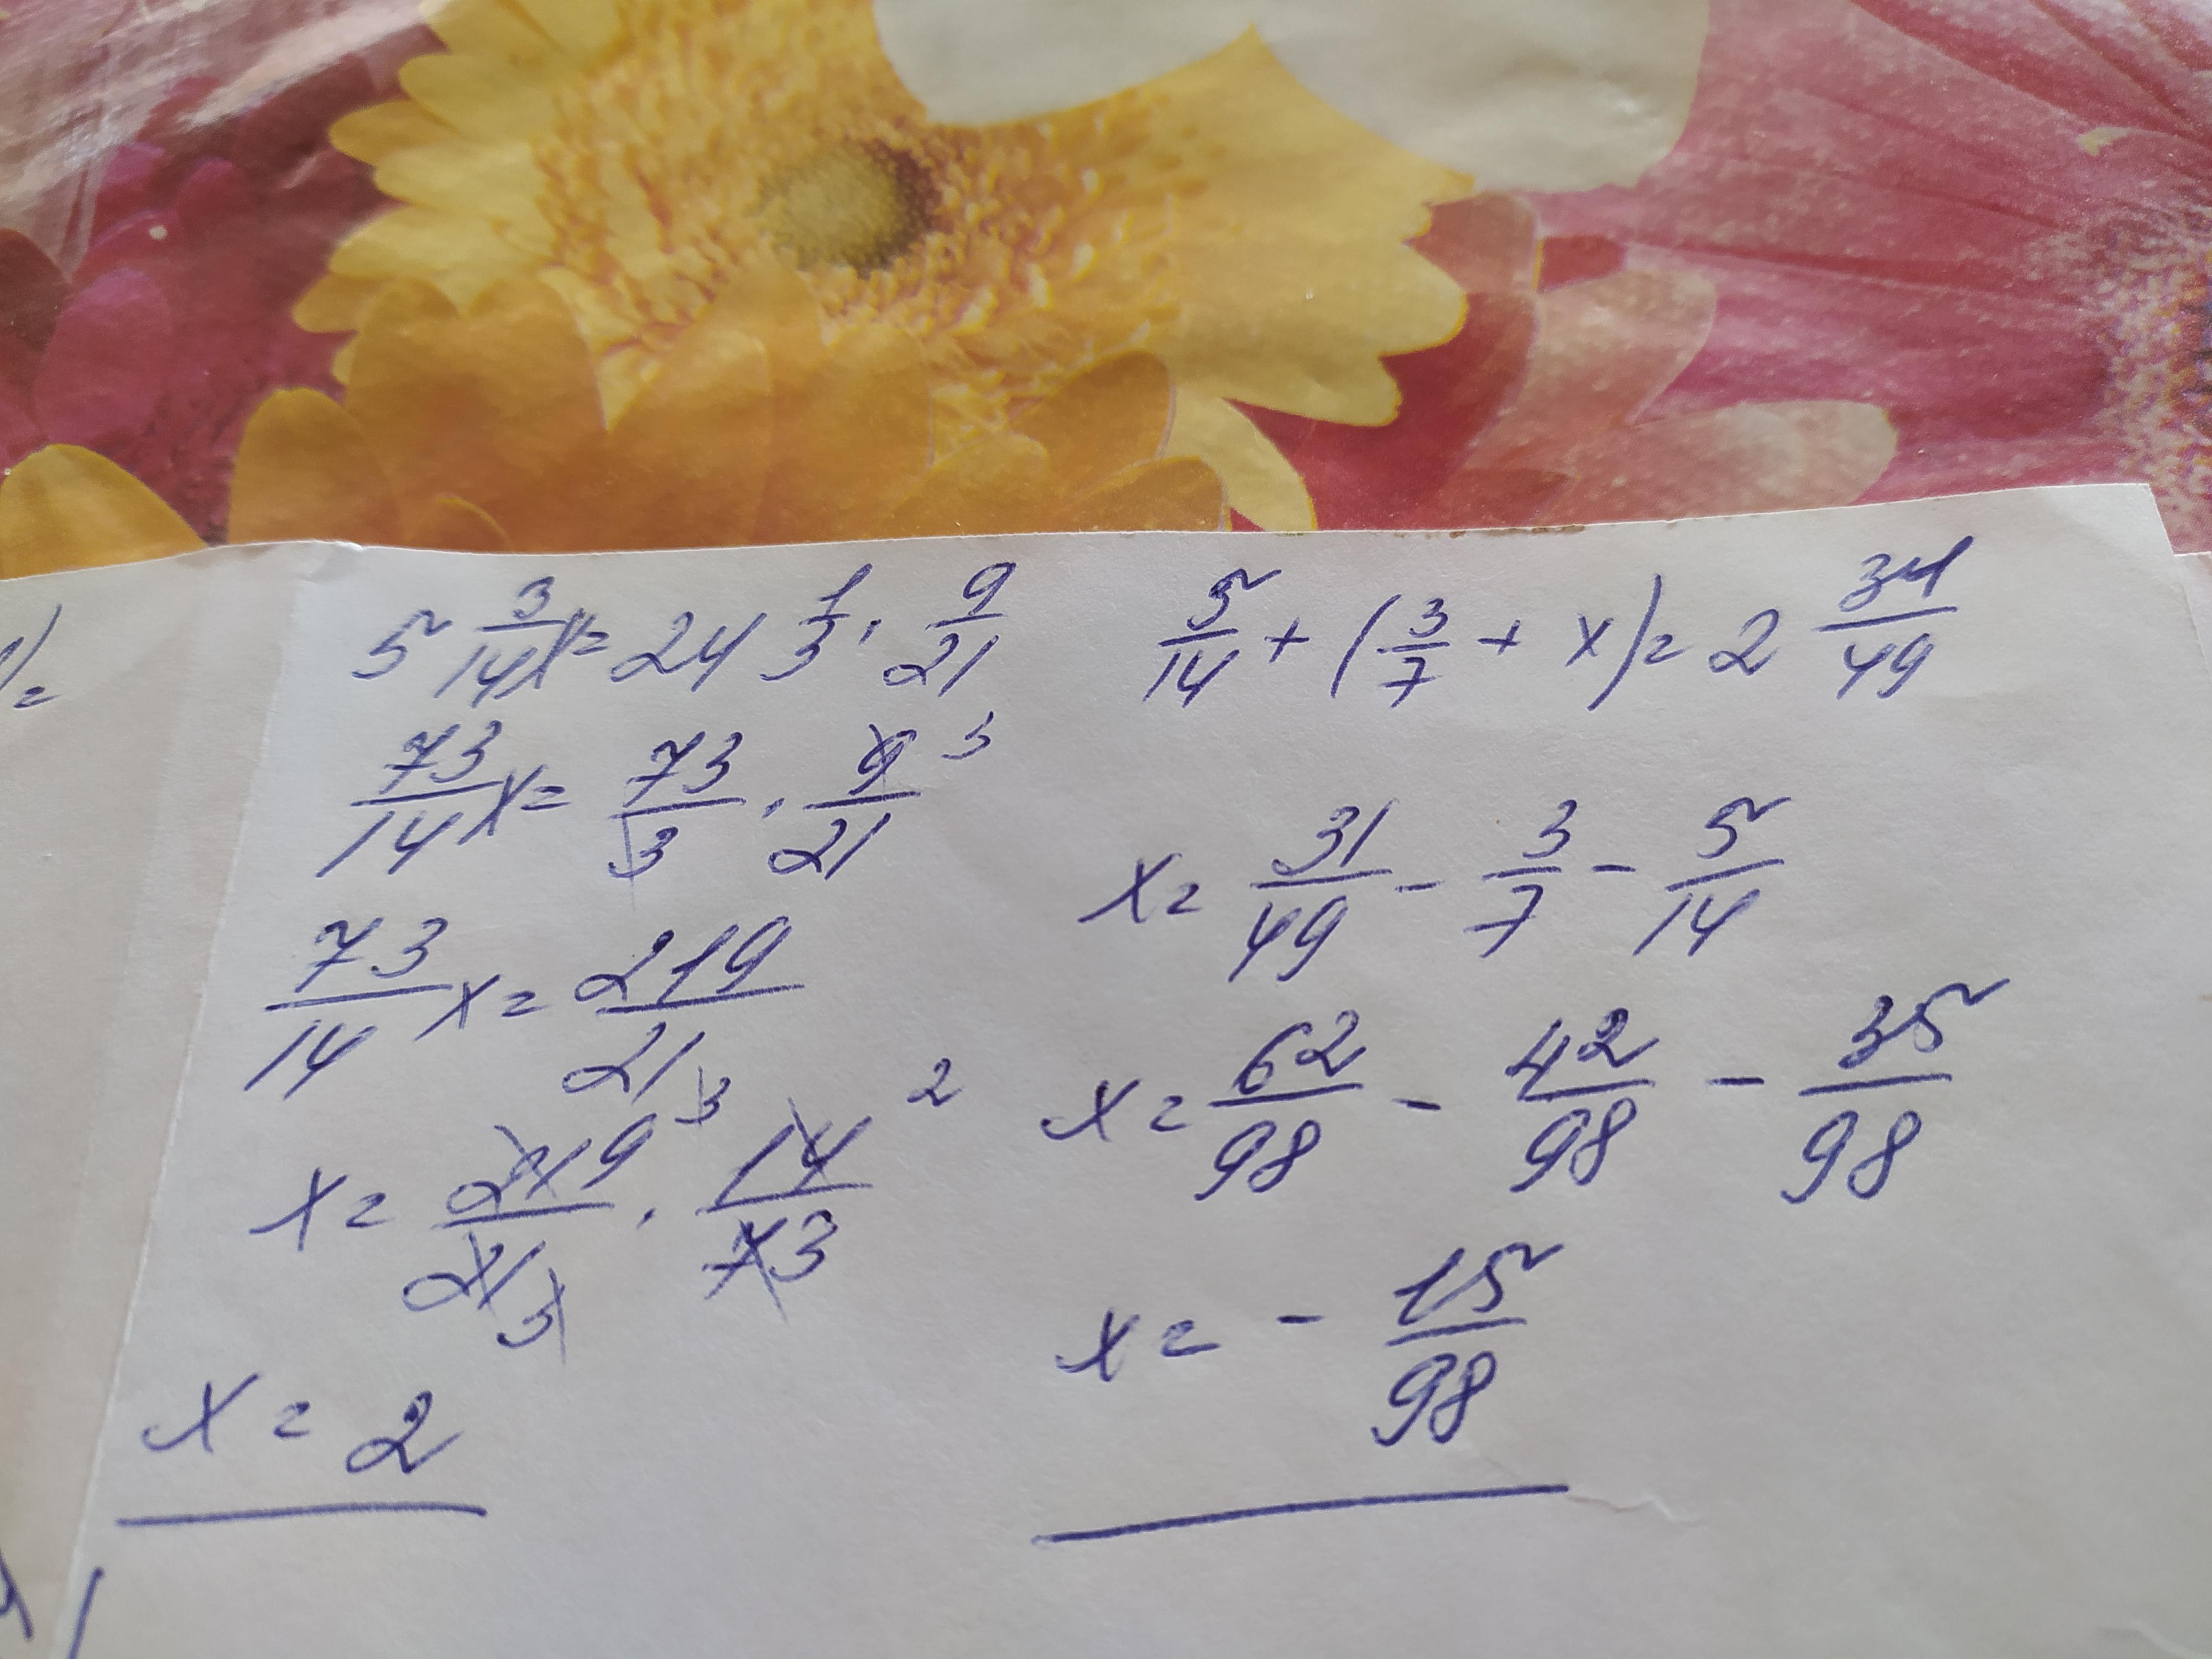 5 3/14 x = 24 1/3 · 9/21
73/14 x = 73/3 · 9/21 3
73/14 x = 219/21
x = 219/21 3/3 · 14/73 2
x = 2
5/14 + (3/7 + x) = 2 34/49
x = 31/49 - 3/7 - 5/14
x = 62/98 - 42/98 - 35/98
x = - 15/98
)=